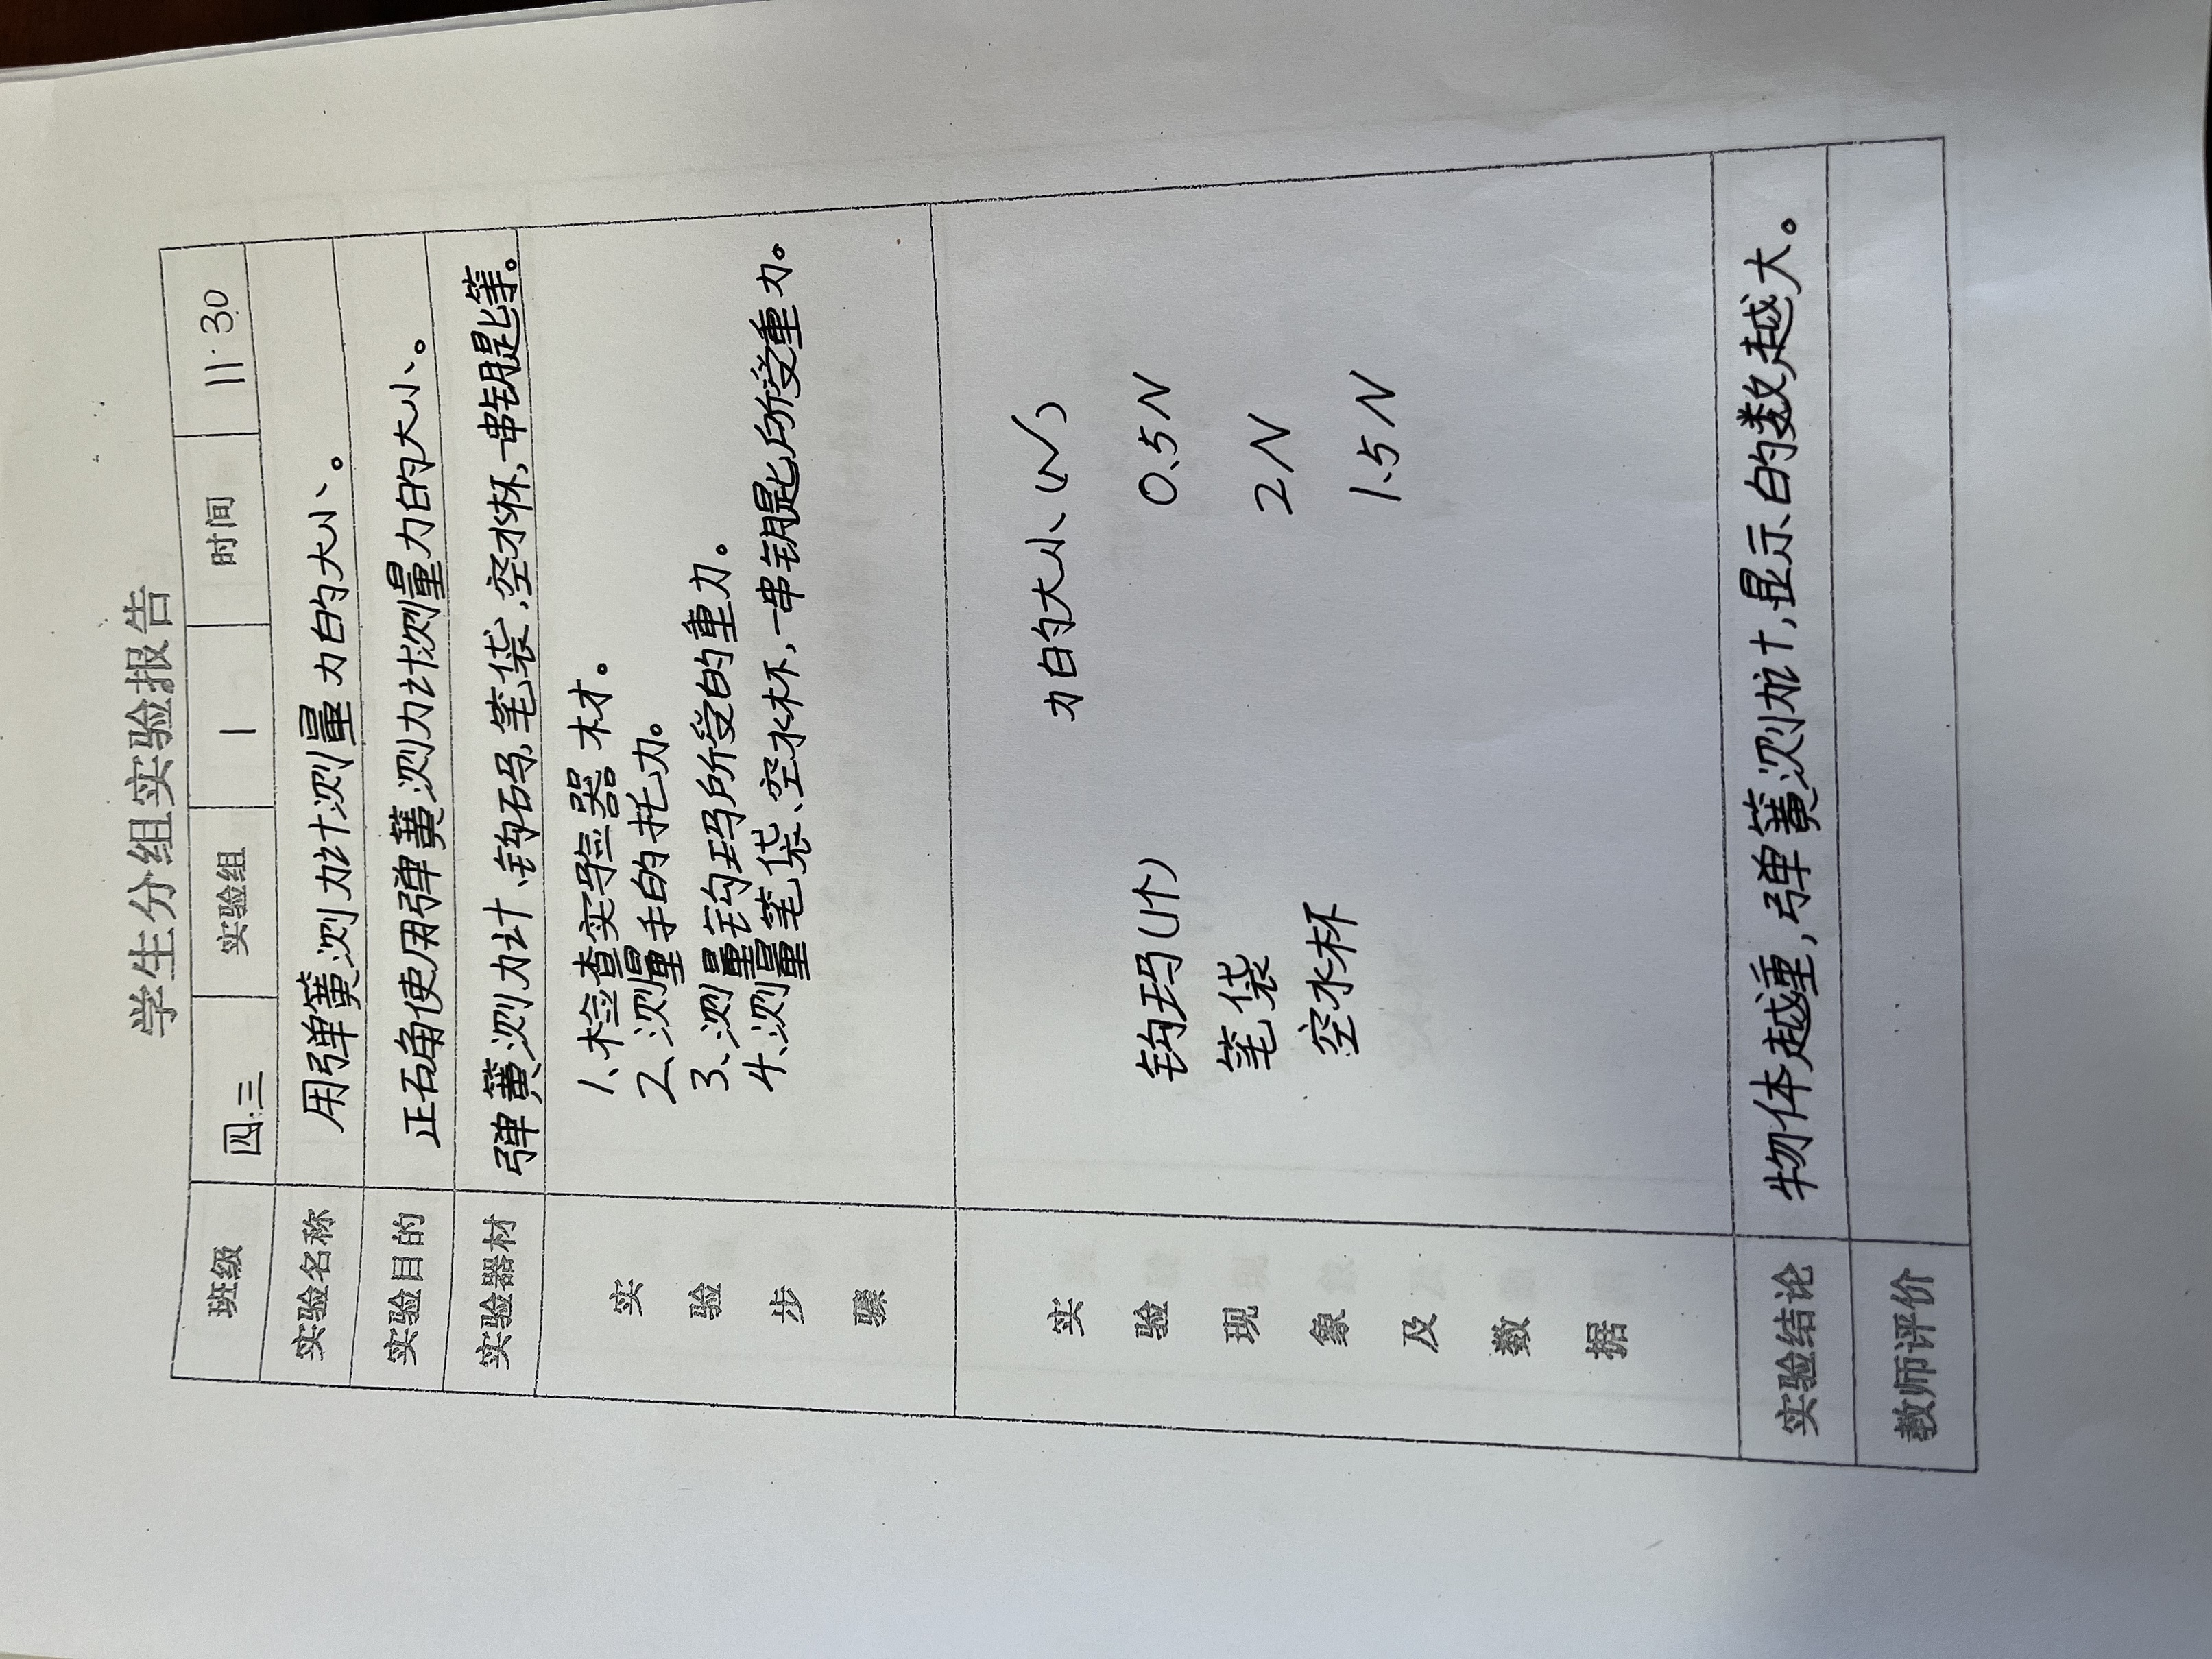 学生分组实验报告
班级 四.三 实验组 1 时间 11.30
实验名称 用弹簧测力计测量力的大小。
实验目的 正确使用弹簧测力计测量力的大小。
实验器材 弹簧测力计、钩码、笔袋、空水杯,一串钥匙等。
实验步骤
1、检查实验器材。
2、测量手的托力。
3、测量钩玛所受的重力。
4、测量笔袋、空水杯,一串钥匙所受重力。
实验现象及数据
力的大小(N)
钩玛(1个) 0.5N
笔袋 2N
空水杯 1.5N
实验结论 物体越重,弹簧测力计,显示的数越大。
教师评价